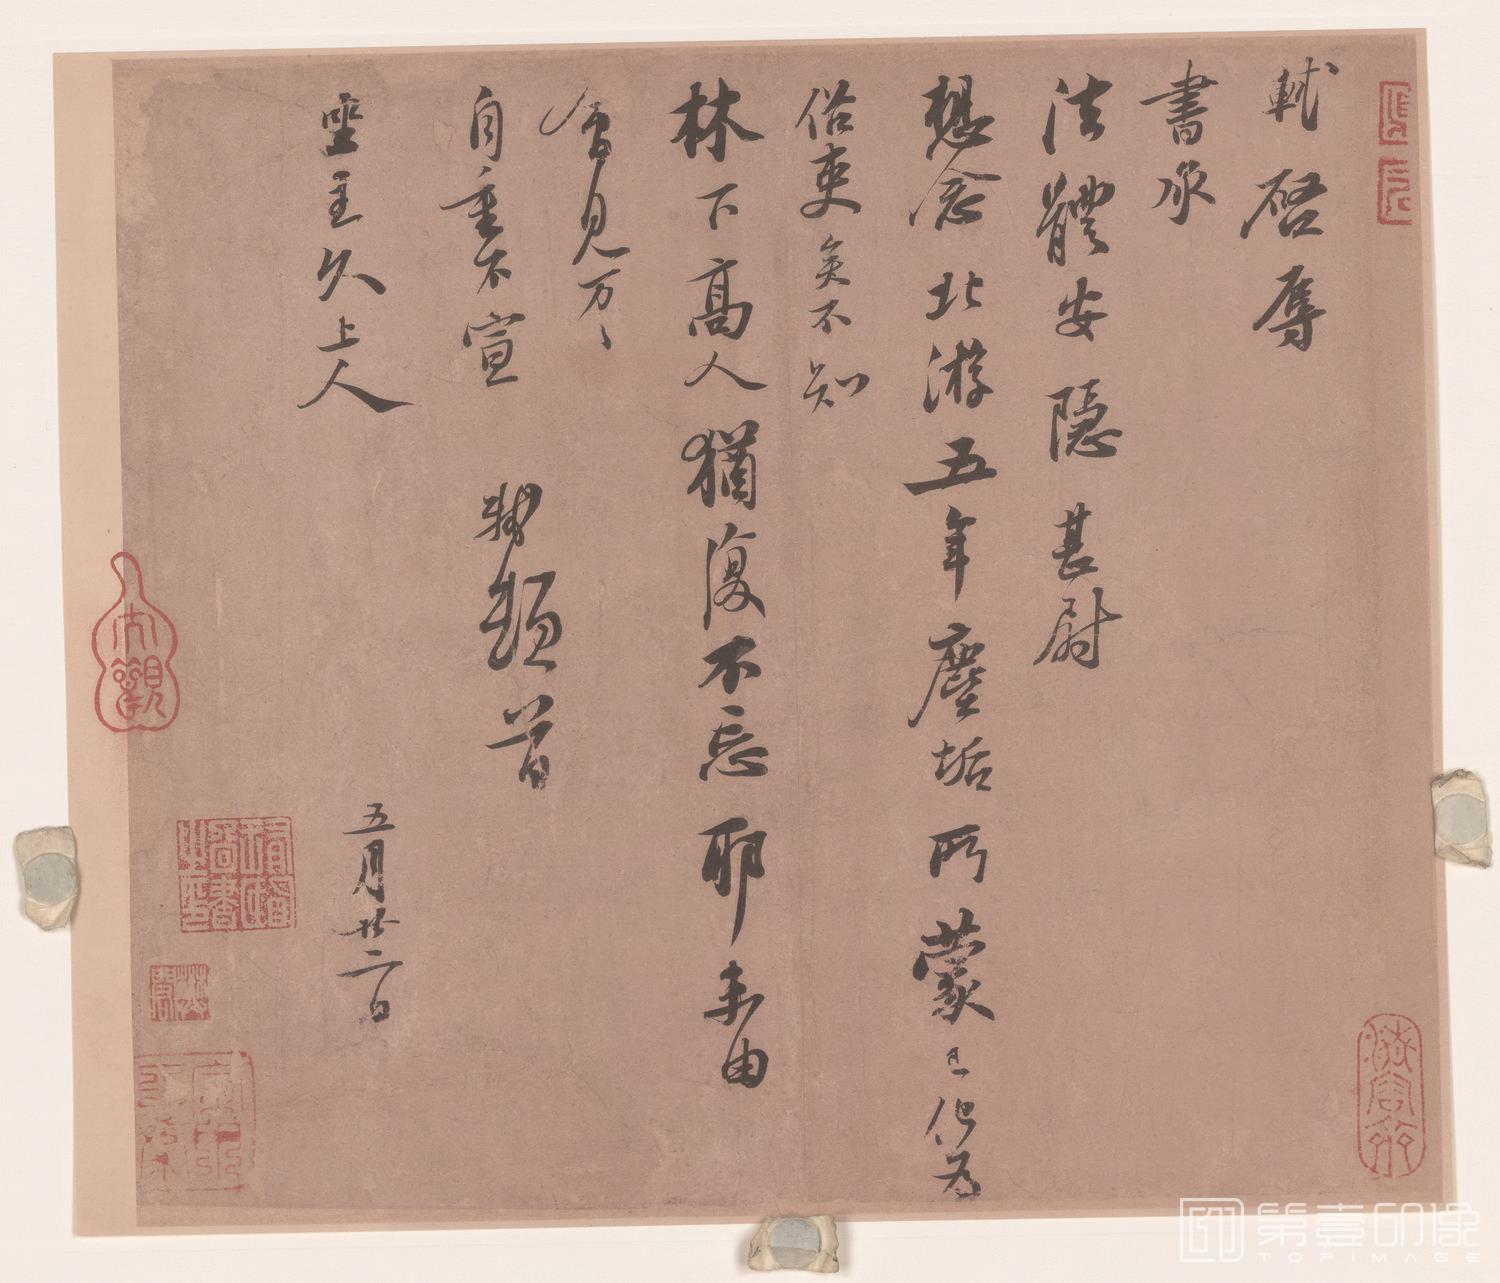 軾啓辱
書承
法體安隱甚慰
想念北游五年塵垢所蒙已化爲
俗吏矣不知
林下高人猶復不忘耶未由
會見万〻
自重不宣　軾頓首
坐主久上人　五月廿二日
大觀
第壹印像
TOPIMAGE